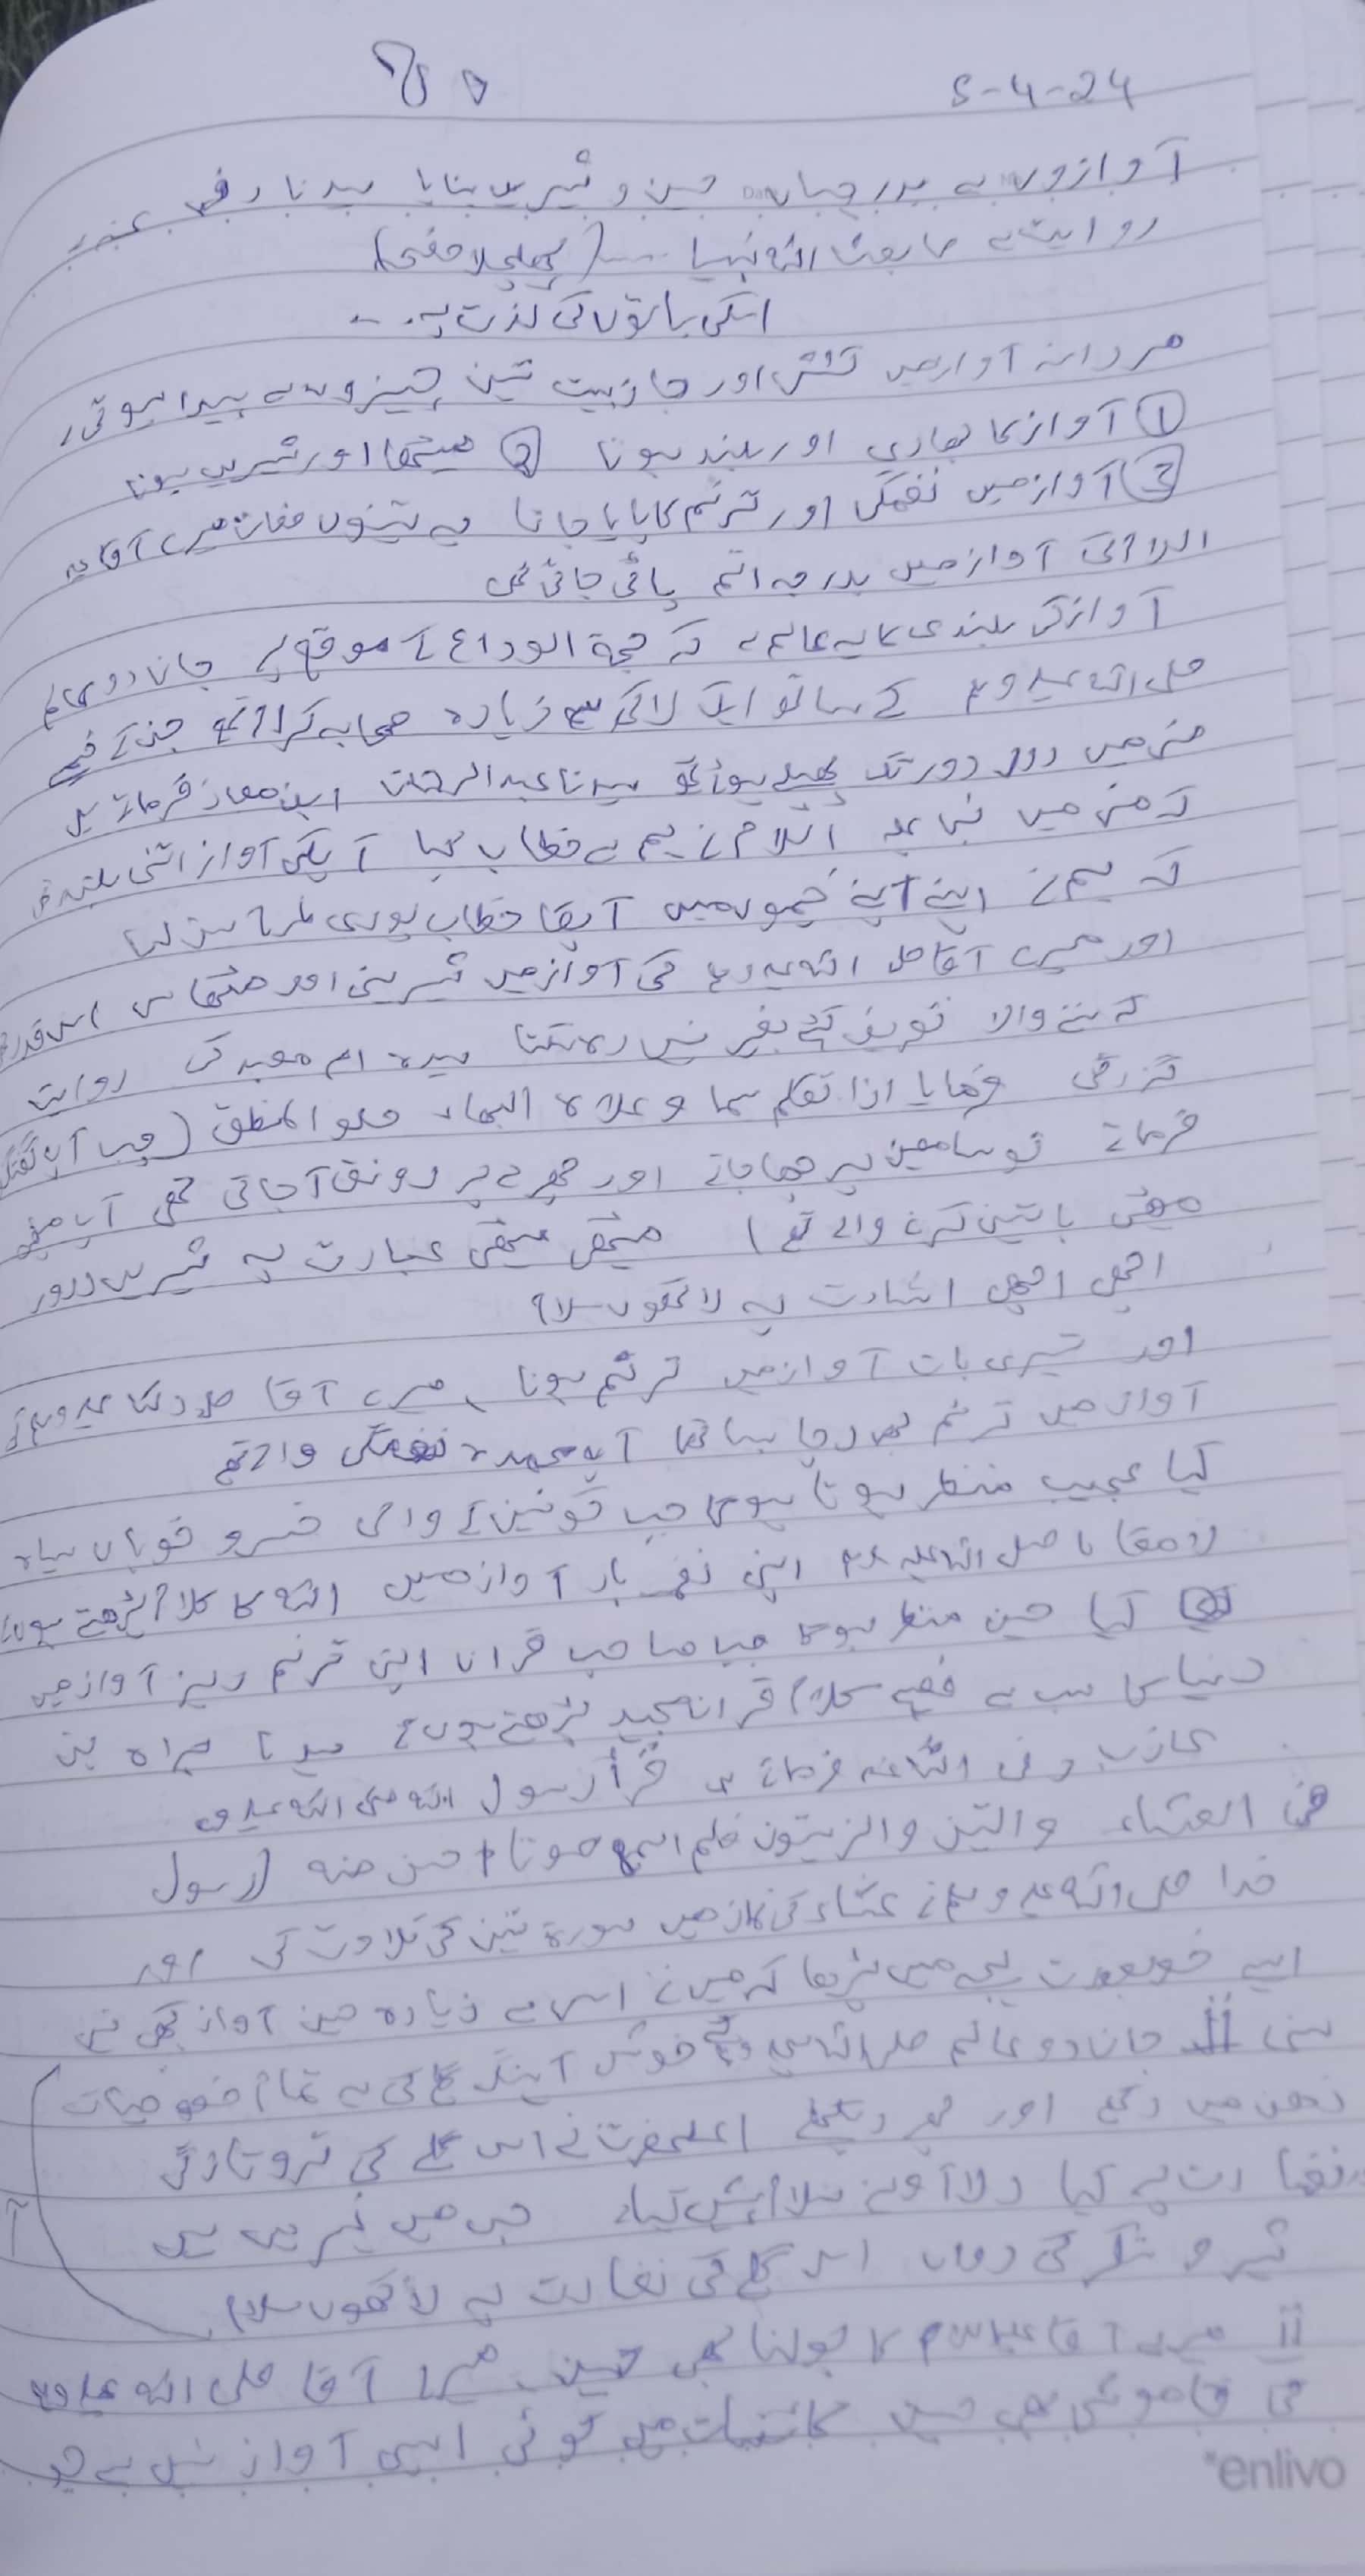 5-4-24
آوازوں سے بدرجہا حسین و شیریں بنایا سیدنا
روایت ہے ما بعث اللہ نبیا ---- (پچھلا صفحہ)
اسکی باتوں کی لذت پہ ---
مردانہ آواز میں کشش اور جاذبیت تین چیزوں سے پیدا ہوتی
① آواز کا بھاری اور بلند ہونا ② میٹھا اور شیریں ہونا
③ آواز میں نغمگی اور ترنم کا پایا جانا یہ تینوں صفات میرے آقا علیہ
السلام کی آواز میں بدرجہ اتم پائی جاتی تھی
آواز کی بلندی کا یہ عالم ہے کہ حجۃ الوداع کے موقع پر جان دو عالم
صلی اللہ علیہ وسلم کے ساتھ ایک لاکھ سے زیادہ صحابہ کرام تھے جن کے خیمے
منی میں دور دور تک پھیلے ہوئے تھے سیدنا عبد الرحمن ابن معاذ فرماتے ہیں
کہ منی میں نبی علیہ السلام نے ہم سے خطاب کیا آپکی آواز اتنی بلند تھی
کہ ہم نے اپنے اپنے خیموں میں آپکا خطاب پوری طرح سن لیا
اور میرے آقا صلی اللہ علیہ وسلم کی آواز میں شیرینی اور مٹھاس اس قدر
کہ سننے والا تعریف کئے بغیر نہیں رہ سکتا سیدہ ام معبد کی روایت
گزر گئی فرمایا اذا تکلم سما و علاہ البھاء حلو المنطق (جب آپ گفتگو
فرماتے تو سامعین پر چھا جاتے اور چہرے پر رونق آجاتی تھی آپ
میٹھی باتیں کرنے والے تھے) میٹھی میٹھی عبارت پہ شیریں درود
اچھی اچھی اشارت پہ لاکھوں سلام
اور تیسری بات آواز میں ترنم ہونا میرے آقا صلی اللہ علیہ وسلم کی
آواز میں ترنم بھی رچا بسا تھا آپ عمدہ نغمگی والے تھے
کیا عجیب منظر ہوتا ہوگا جب کونین کے والی خسرو خوباں سیاہ
صلی اللہ علیہ وسلم اپنی نغمہ بار آواز میں اللہ کا کلام پڑھتے ہوں گے
کیا حسین منظر ہوگا جب صاحب قرآن اپنی ترنم ریز آواز میں
دنیا کا سب سے فصیح کلام قرآن مجید پڑھتے ہوں گے سیدنا براء بن
عازب رضی اللہ عنہ فرماتے ہیں قرأ رسول اللہ صلی اللہ علیہ و
فی العشاء والتین والزیتون فلم اسمع صوتا احسن منه (رسول
خدا صلی اللہ علیہ وسلم نے عشاء کی نماز میں سورۃ تین کی تلاوت کی اور
ایسے خوبصورت لہجہ میں پڑھا کہ میں نے اس سے زیادہ حسین آواز کبھی نہیں
سنی جان دو عالم صلی اللہ علیہ وسلم کے خوش آہنگ گلے کی یہ تمام خصوصیات
ذہن میں رکھے اور پھر دیکھئے اعلحضرت نے اس گلے کی تروتازگی
نضارت پہ کیا دلآویز سلام پیش کیا جس میں نہریں ہیں
شیر و شکر کی رواں اس گلے کی نضارت پہ لاکھوں سلام
میرے آقا علیہ السلام کا بولنا بھی حسین میرے آقا صلی اللہ علیہ وسلم
کی خاموشی بھی حسین کائنات میں کوئی ایسی آواز نہیں ہے جو
enlivo